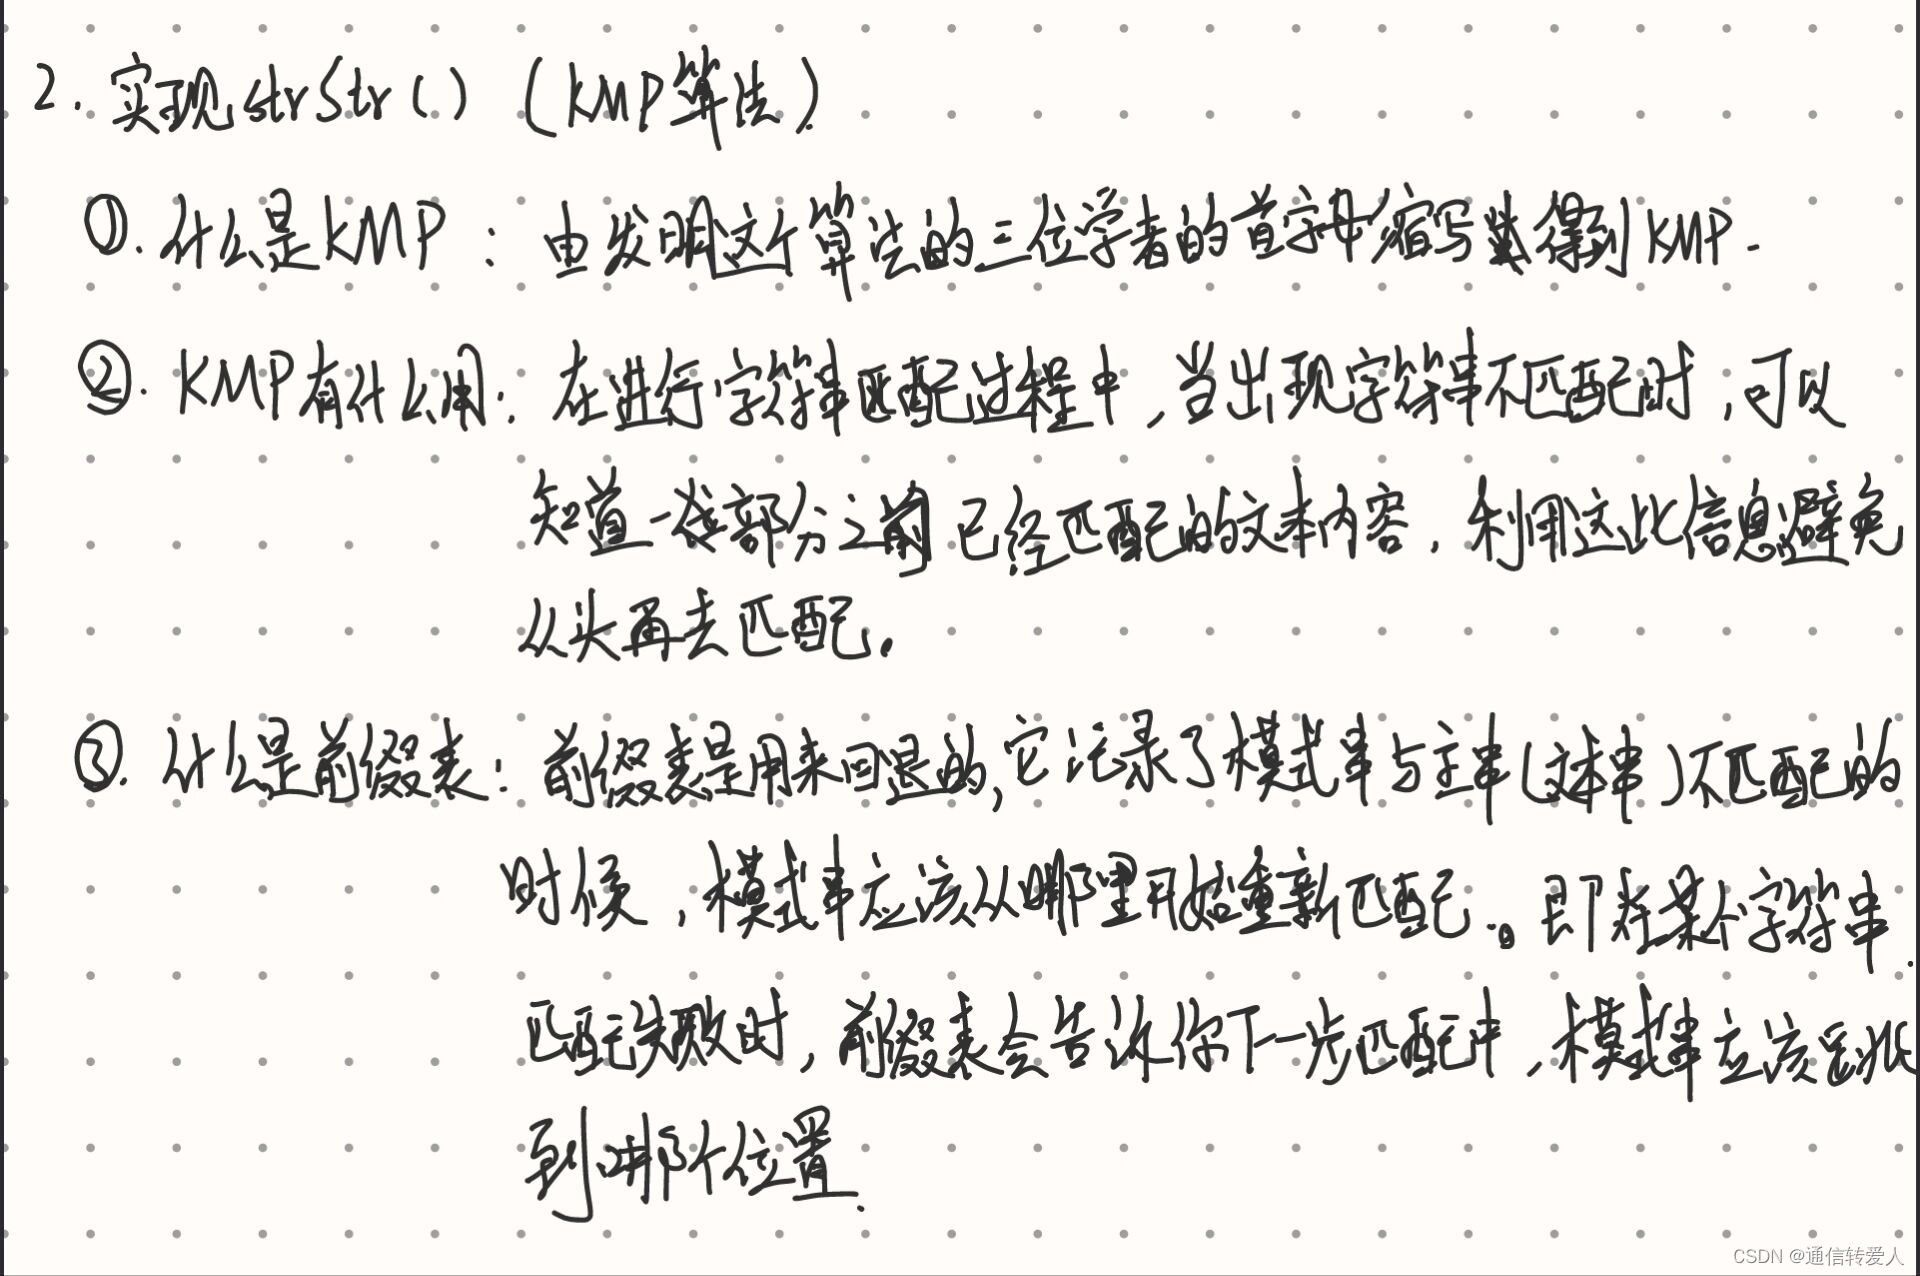 2. 实现strStr() (KMP算法)
①. 什么是KMP: 由发明这个算法的三位学者的首字母缩写得到KMP.
②. KMP有什么用: 在进行字符串匹配过程中,当出现字符串不匹配时,可以
知道一部分之前已经匹配的文本内容,利用这些信息避免
从头再去匹配。
③. 什么是前缀表: 前缀表是用来回退的,它记录了模式串与主串(文本串)不匹配的
时候,模式串应该从哪里开始重新匹配。即在某个字符串
匹配失败时,前缀表会告诉你下一步匹配中,模式串应该跳
到哪个位置.
CSDN @通信转爱人